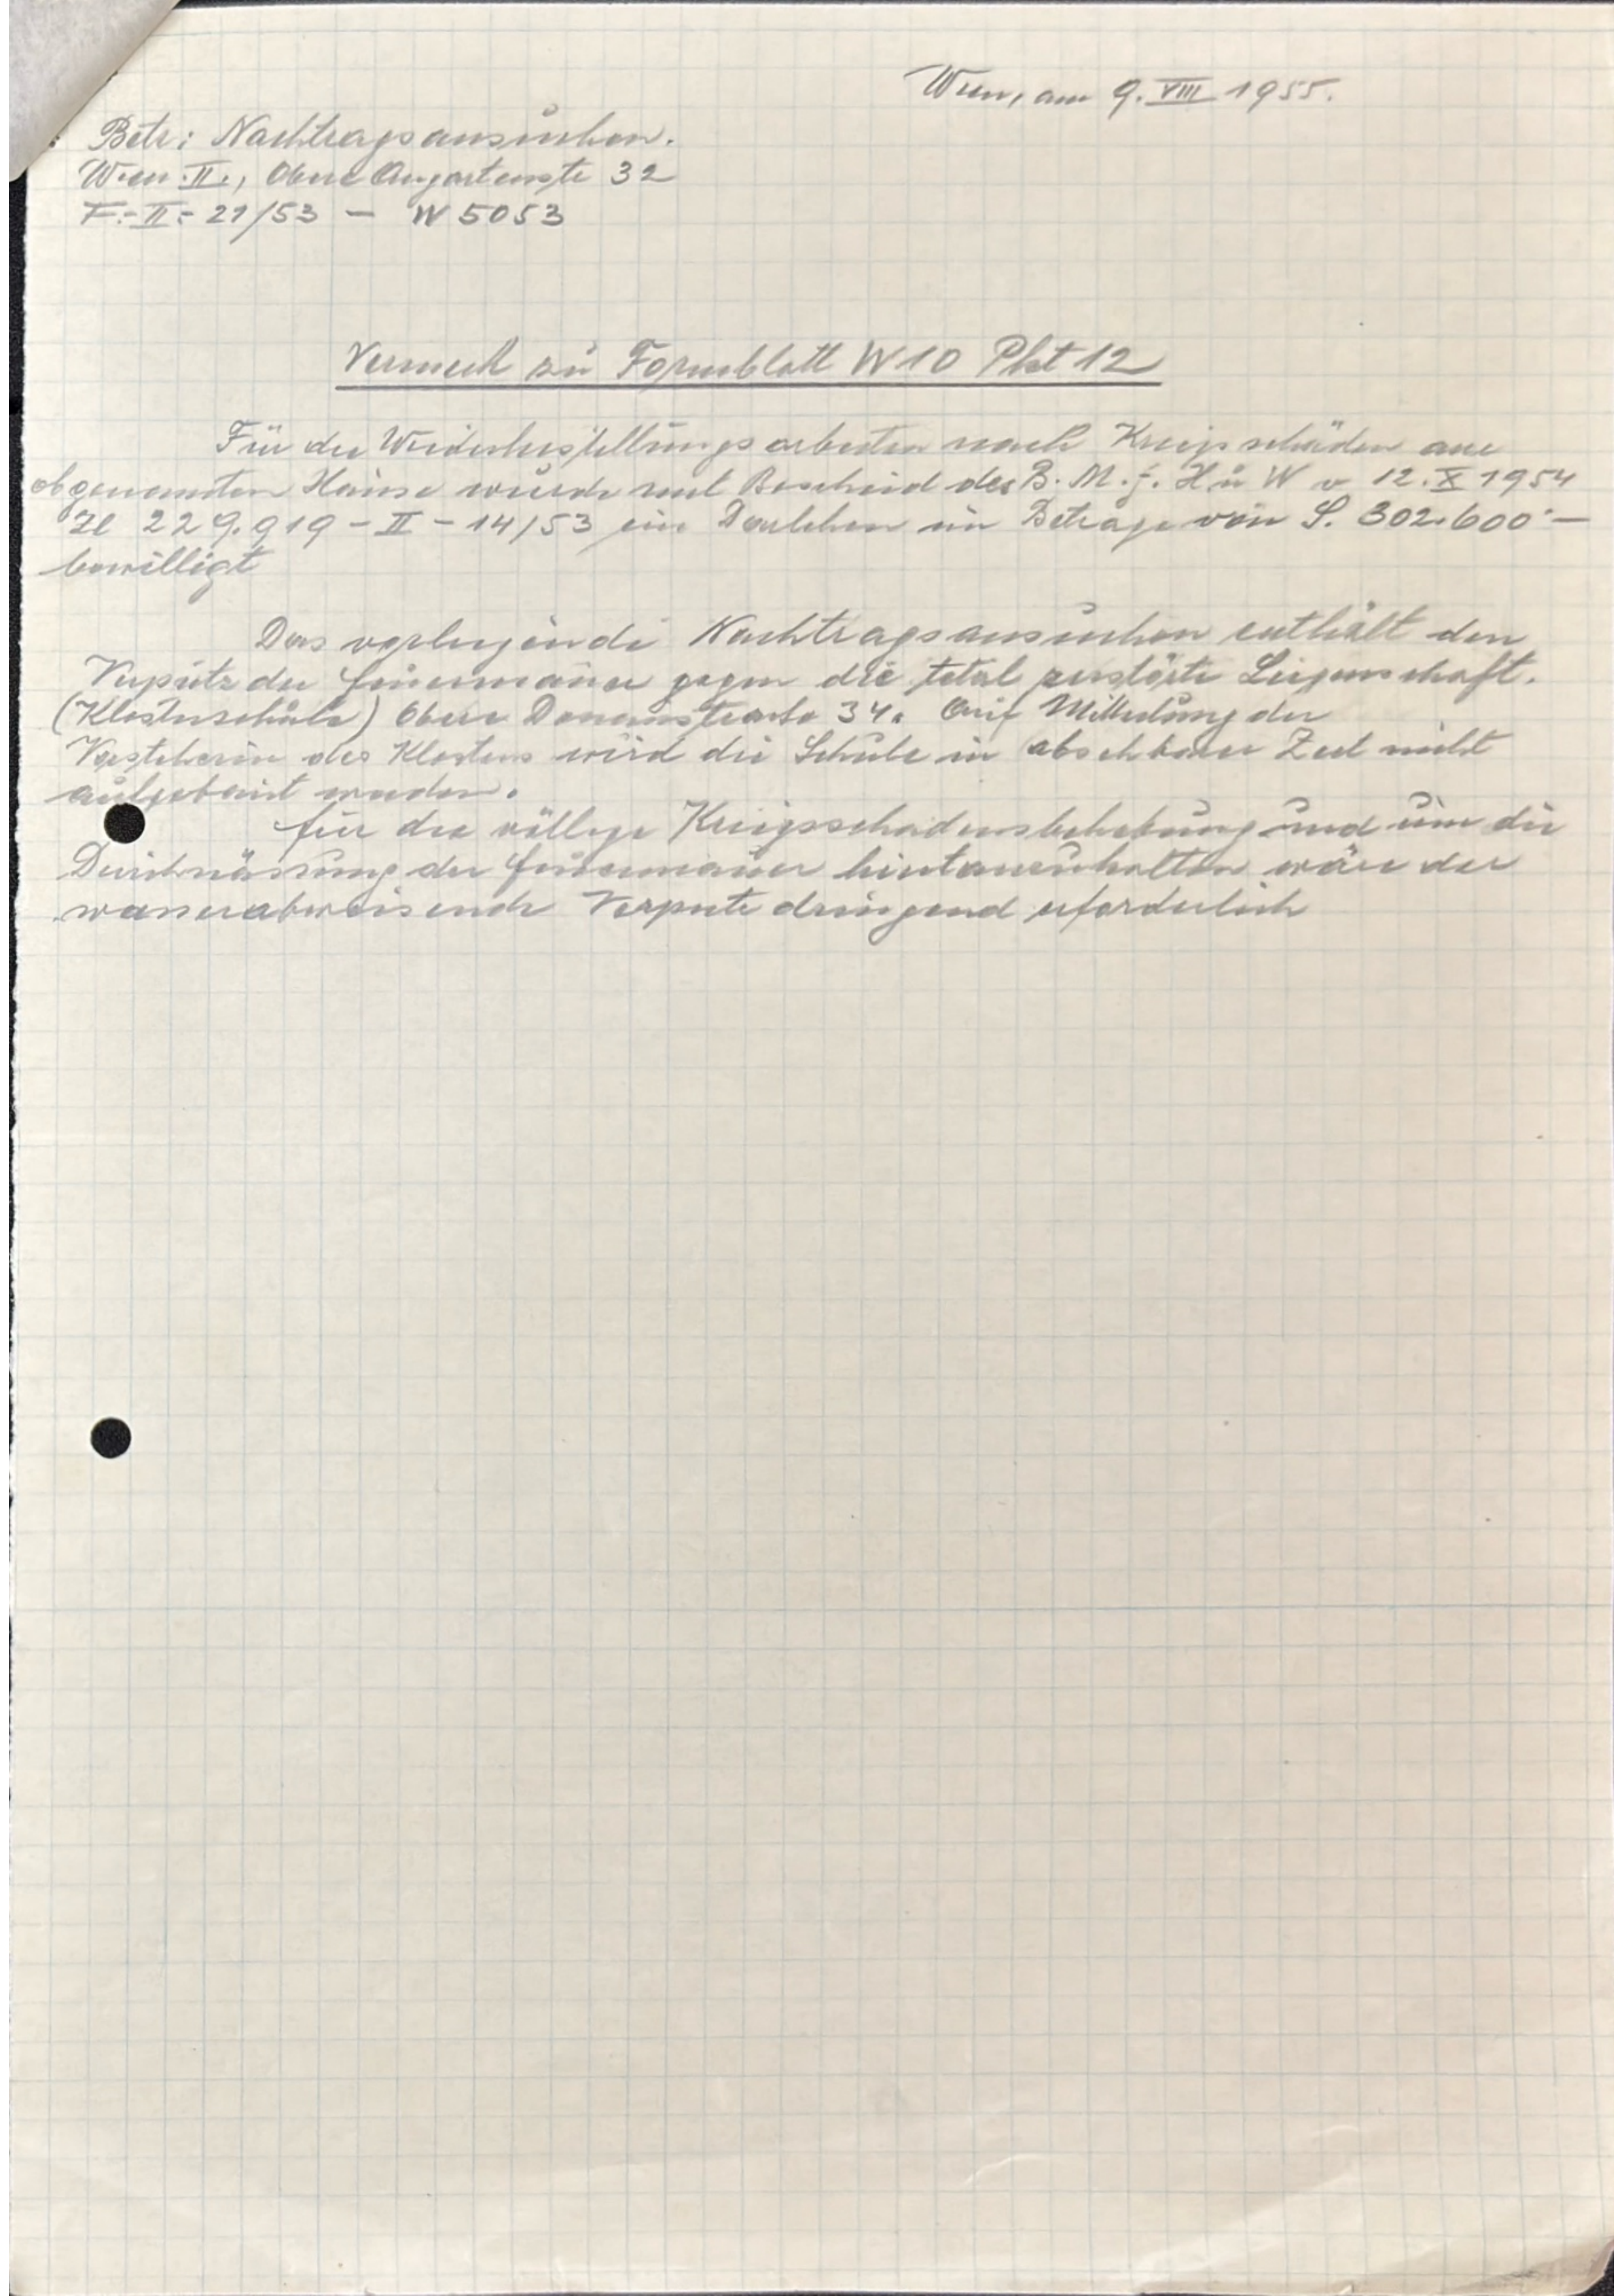 Wien, am 9. VIII 1955.
Betr: Nachtragsansuchen.
Wien II., Obere Augartenstr 32
F.-II- 21/53 — W 5053
Vermerk zu Formblatt W10 Pkt 12
Für die Wiederherstellungsarbeiten nach Kriegsschäden am
obgenannten Hause wurde mit Bescheid des B. M. f. H u W v 12. X 1954
Zl 229.919 - II - 14/53 ein Darlehen im Betrage von S. 302.600·—
bewilligt
Das vorliegende Nachtragsansuchen enthält den
Verputz der Feuermauer gegen die total zerstörte Liegenschaft.
(Klosterschule) Obere Donaustraße 34. Auf Mitteilung der
Vorsteherin des Klosters wird die Schule in absehbarer Zeit nicht
aufgebaut werden.
für die völlige Kriegsschadensbehebung und um die
Durchnässung der Feuermauer hintanzuhalten wäre der
wasserabweisende Verputz dringend erforderlich